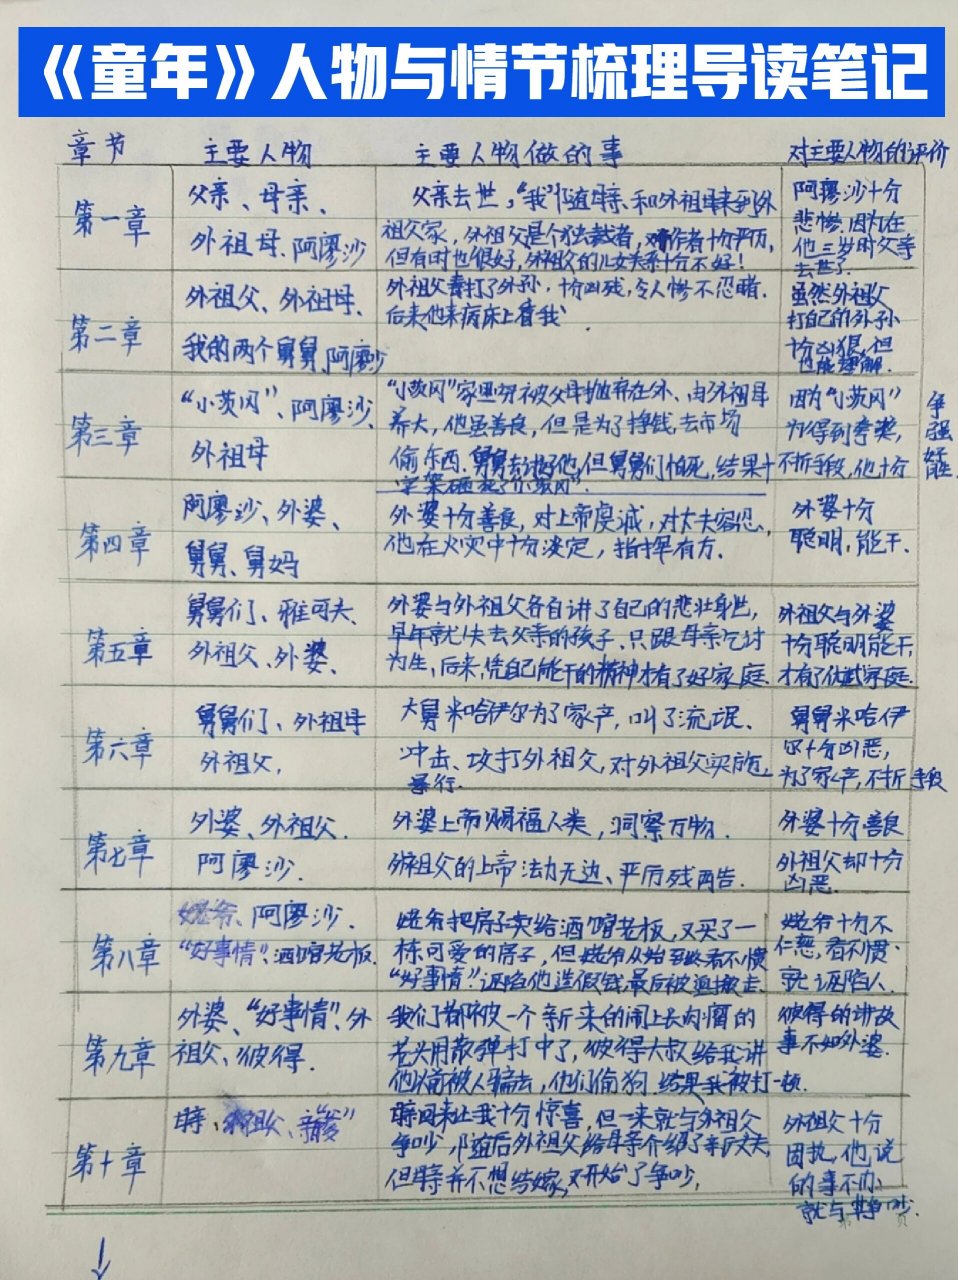 《童年》人物与情节梳理导读笔记
章节 主要人物 主要人物做的事 对主要人物的评价
第一章
父亲、母亲、
外祖母、阿廖沙
父亲去世，"我"随母亲、和外祖母来到外
祖父家，外祖父是个独裁者，对作者十分严厉，
但有时也很好，外祖父的儿女关系十分不好！
阿廖沙十分
悲惨，因为在
他三岁时父亲
去世了.
第二章
外祖父、外祖母、
我的两个舅舅、阿廖沙
外祖父毒打了外孙，十分凶残，令人惨不忍睹.
后来他来病床上看我
虽然外祖父
打自己的外孙
十分凶狠，但
也能理解.
第三章
"小茨冈"、阿廖沙、
外祖母
"小茨冈"家里穷被父母抛弃在外、由外祖母
养大，他虽善良，但是为了挣钱，去市场
偷东西、舅舅去讨好他，但舅舅们怕死，结果十
字架砸死了"小茨冈".
因为"小茨冈"
为得到夸奖，
不折手段，他十分
争
强
好
胜
第四章
阿廖沙、外婆、
舅舅、舅妈
外婆十分善良，对上帝虔诚，对丈夫容忍，
他在火灾中十分淡定，指挥有方.
外婆十分
聪明，能干.
第五章
舅舅们、雅可夫、
外祖父、外婆、
外婆与外祖父各自讲了自己的悲壮身世，
早年就失去父亲的孩子、只跟母亲乞讨
为生，后来，凭自己能干的精神才有了好家庭.
外祖父与外婆
十分聪明能干，
才有了优越家庭.
第六章
舅舅们、外祖母
外祖父，
大舅米哈伊尔为了家产，叫了流氓、
冲击、攻打外祖父，对外祖父实施
暴行.
舅舅米哈伊
尔十分凶恶，
为了家产，不折手段
第七章
外婆、外祖父.
阿廖沙.
外婆上帝赐福人类，洞察万物.
外祖父的上帝法力无边、严厉残酷.
外婆十分善良
外祖父却十分
凶恶.
第八章
姥爷、阿廖沙.
"好事情"、酒馆老板.
姥爷把房子卖给酒馆老板，又买了一
栋可爱的房子，但姥爷从始至终看不惯
"好事情"！诬陷他造假钱，最后被逼搬走.
姥爷十分不
仁慈，看不惯
就诬陷人.
第九章
外婆、"好事情"、外
祖父、彼得.
我们都被一个新来的闹上长肉瘤的
老头用散弹打中了，彼得大叔给我讲
他以前被人骗去，他们偷狗.结果我被打一顿.
彼得的讲故
事不如外婆.
第十章
母亲、外祖父、新"爹"
母亲回来让我十分惊喜，但一来就与外祖父
争吵，随后外祖父给母亲介绍了新丈夫，
但母亲并不想结婚，又开始了争吵，
外祖父十分
固执，他说
的事不办
就与母亲争吵.
第 页